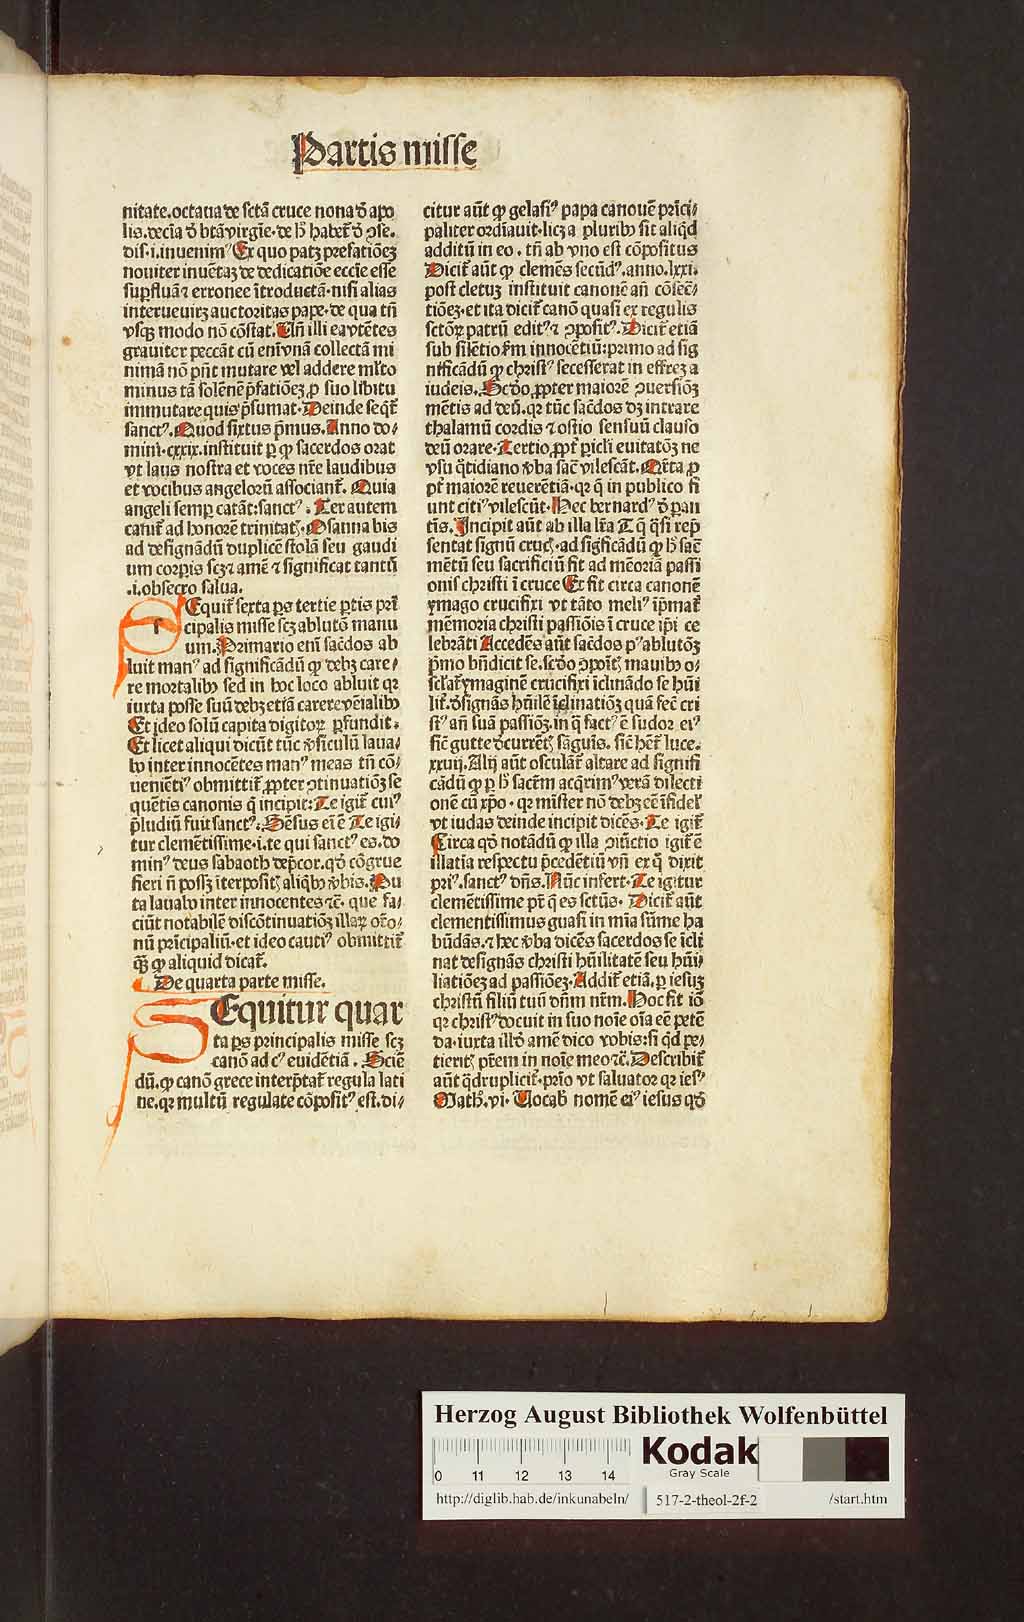 Partis misse
nitate.octaua de sctā cruce nona ď apo
lis.decīa ď btā virgīe.de bͭ habetͬ ď ↄse.
dis.i.inuenimꝰ Ex quo patꝫ prefatiōeꝫ
nouiter inuētaꝫ de dedicatiōe eccīe esse
suꝑfluā ⁊ erronee ītroductā.nisi alias
interueuirꝫ auctoritas pape.de qua tn̄
vsqꝫ modo nō cōstat.Un̄ illi eavtētes
grauiter peccāt cū enīvnā collectā mi
nimā nō pn̄t mutare vel addere ml̄to
minus tā solēnē p̄fatiōeꝫ ꝓ suo libitu
immutare quis p̄sumat.Deinde seqͭr
sanctꝰ.Quod sixtus p̄mus.Anno do⸗
mini.cxxix.instituit ꝑ ꝙ sacerdos orat
vt laus nostra et voces nr̄e laudibus
et vocibus angelorū associantͬ.Quia
angeli semꝑ catāt:sanctꝰ.Ter autem
catutͬ ad honorē trinitatꝭ.Osanna bis
ad designādū duplicē stolā seu gaudi
um corpis scꝫ ⁊ amē ⁊ significat tantū
.i.obsecro salua.
SEquitͬ sexta ꝑs tertie ꝑtis prī
cipalis misse scꝫ ablutō manu
um.Primario enī sac̄dos ab
luit manꝰ ad significādū ꝙ debꝫ care⸗
re mortalibꝰ sed in hoc loco abluit qꝛ
iuxta posse suū debꝫ etiā carere vēialibꝰ
Et ideo solū capita digitoꝝ ꝑfundit.
Et licet aliqui dicūt tūc v̄siculū laua⸗
bo inter innocētes manꝰ meas tn̄ cō⸗
uenīētiꝰ obmittitͬ ꝓpter ↄtinuatiōꝫ se
quētis canonis q̄ incipit:Te igitͬ cuiꝰ
p̄ludiū fuit sanctꝰ.Sēsus eī ē Te igi⸗
tur clemētissime.i.te qui sanctꝰ es.do
minꝰ deus sabaoth dep̄cor.qd̄ cōgrue
fieri n̄ possꝫ īterpositꝭ aliqbꝰ v̄bis.Pu
ta lauabo inter innocentes ⁊c̄.que fa⸗
ciūt notabilē discōtinuatiōꝫ illaꝝ or̄o⸗
nū prīcipaliū.et ideo cautiꝰ obmittitͬ
qͣꝫ ꝙ aliquid dicatͬ.
De quarta parte misse.
SEquitur quar
ta ꝑs principalis misse scꝫ
canō ad cꝰ euidētiā.Sciē
dū.ꝙ canō grece interp̄tatͬ regula lati
ne.qꝛ multū regulate cōpositꝰ est.di⸗
citur aūt ꝙ gelasiꝰ papa canouē prīci⸗
paliter ordiauit.licꝫ a pluribꝰ sit aliqd
additū in eo.tn̄ ab vno est cōpositus
Dicitͬ aūt ꝙ clemēs secūdꝰ.anno.lxxi.
post cletuꝫ instituit canonē an̄ cōsec⸗
tiōeꝫ.et ita dicitͬ canō quasi ex regulis
sctōꝝ patrū editꝰ ⁊ ↄpositꝰ.Dicitͬ etiā
sub silētio ſm innocētiū:primo ad sig
nificādū ꝙ christꝰ secesserat in effreꝫ a
iudeis.Scd̄o ꝓpter maiorē ↄuersiōꝫ
mētis ad deū.qꝛ tūc sac̄dos dꝫ intrare
thalamū cordis ⁊ ostio sensuū clauso
deū orare.Tertio ꝓptͬ ꝑicli euitatōꝫ ne
vsu qͦtidiano v̄ba sac̄ vilescāt.Qrͣta ꝓ
ptͬ maiorē reuerētiā.qꝛ q̄ in publico fi
unt citiꝰ vilescūt.Hec bernardꝰ ď ꝑau
tīs.Incipit aūt ab illa lr̄a T q̄ qͣsi rep̄
sentat signū crucꝭ.ad sigficādū ꝙ bͭ sac̄
mētū seu sacrificiū fit ad mēoriā passi
onis christi ī cruce Et fit circa canonē
ymago crucifixi vt tāto meliꝰ īp̄matͬ
mēmoria christi passiōis ī cruce ip̄i ce
lebrāti Accedēs aūt sac̄dos pꝰ ablutōꝫ
p̄mo bn̄dicit se.scd̄o ↄp̄oītꝭ manibꝰ o⸗
sclatͬ ymaginē crucifixi īclinādo se hūi
litͬ.d̄signās hūilē īclinatiōꝫ quā fec̄ cri
stꝰ an̄ suā passiōꝫ.in q̄ factꝰ ē sudor eiꝰ
sic̄ gutte d̄currētꝭ sāguis.sic̄ hr̄ luce.
xxuij.Alij aūt osculātͬ altare ad signifi
cādū ꝙ ꝑ bͭ sacr̄m acqͥrimꝰ verā dilecti
onē cū xp̄o.qꝛ mīster nō debꝫ eē īfidel̄
vt iudas deinde incipit dicēs.Te igitͬ
Circa qd̄ notādū ꝙ illa ↄiūctio igitͬ ē
illatia respectu p̄cedētiū vn̄ ex q̄ dixit
priꝰ.sanctꝰ dn̄s.Nūc infert.Te igitur
clemētissime pr̄ qͥ es sctūs.Dicitͬ aūt
clementissimus quasi in mīa sūme ha
būdās.⁊ hec v̄ba dicēs sacerdos se īcli
nat designās christi hūilitatē seu hūi⸗
liatiōeꝫ ad passiōeꝫ.Additͬ etiā.ꝑ iesuꝫ
christū filiū tuū dn̄m nr̄m.Hoc fit iō
qꝛ christꝰ docuit in suo noīe oīa eē petē
da.iuxta illḋ amē dico vobis:si qd pe⸗
tieritꝭ pr̄em in noīe meo ⁊c̄.Describitͬ
aūt qͣdruplicitͬ.prīo vt saluator qꝛ iesꝰ
Math̄.vi.Uocab̄ nomē eiꝰ iesus qd̄
Herzog August Bibliothek Wolfenbüttel
0 11 12 13 14
Kodak
Gray Scale
http://diglib.hab.de/inkunabeln/ 517-2-theol-2f-2 /start.htm